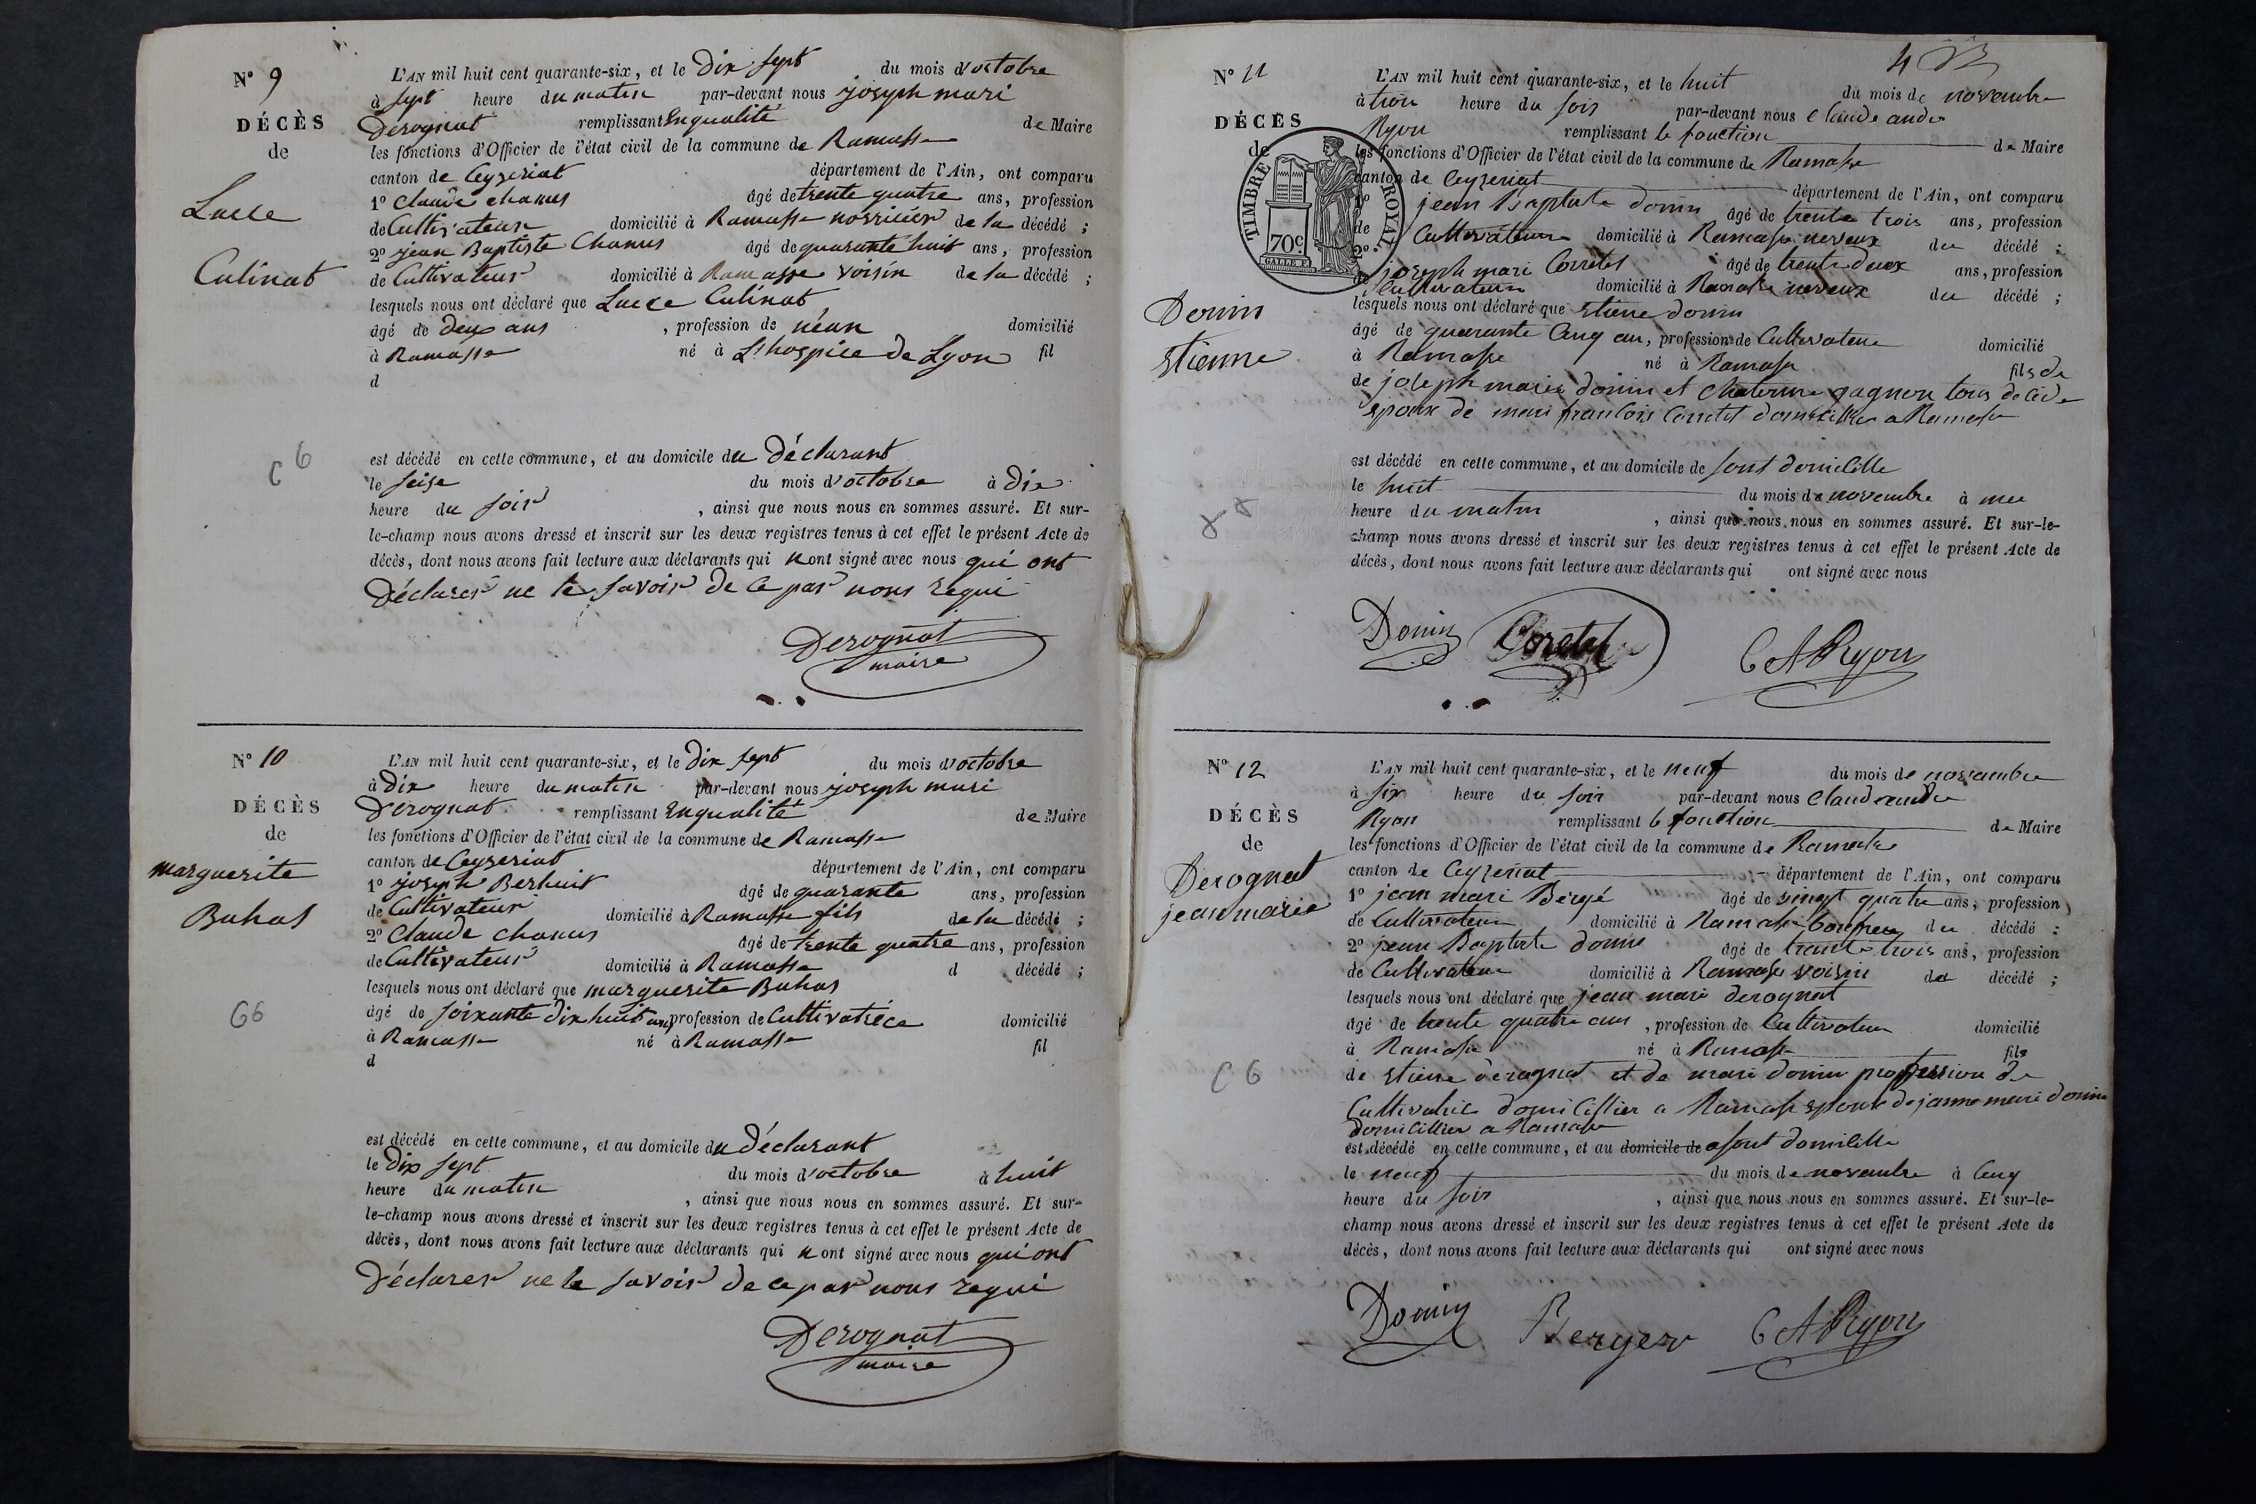 N° 9
DÉCÈS
de
Lucce
Culinat
C 6
L'AN mil huit cent quarante-six, et le Dix sept du mois d'octobre
à sept heure du matin par-devant nous joseph mari
Derognat remplissant Enqualité de Maire
les fonctions d'Officier de l'état civil de la commune de Ramasse
canton de Ceyzeriat département de l'Ain, ont comparu
1° Claude chanus âgé de trente quatre ans, profession
de Cultivateur domicilié à Ramasse nourricier de la décédé ;
2° jean Baptiste Chanus âgé de quarante huit ans, profession
de Cultivateur domicilié à Ramasse voisin de la décédé ;
lesquels nous ont déclaré que Lucce Culinat
âgé de deux ans , profession de néan domicilié
à Ramasse né à L'hospice de Lyon fil
d
est décédé en cette commune, et au domicile du Déclarant
le seize du mois d'octobre à Dix
heure du soir , ainsi que nous nous en sommes assuré. Et sur-
le-champ nous avons dressé et inscrit sur les deux registres tenus à cet effet le présent Acte de
décès, dont nous avons fait lecture aux déclarants qui n ont signé avec nous qui ont
Déclarer ne le savoir de ce par nous requi
Derognat
maire
N° 10
DÉCÈS
de
marguerite
Buhas
66
L'AN mil huit cent quarante-six, et le Dix sept du mois d'octobre
à Dix heure du matin par-devant nous joseph mari
Derognat remplissant Enqualité de Maire
les fonctions d'Officier de l'état civil de la commune de Ramasse
canton de Ceyzeriat département de l'Ain, ont comparu
1° joseph Berhuit âgé de quarante ans, profession
de Cultivateur domicilié à Ramasse fils de la décédé ;
2° Claude chanus âgé de trente quatre ans, profession
de Cultivateur domicilié à Ramasse d décédé ;
lesquels nous ont déclaré que marguerite Buhas
âgé de soixante Dix huit ans profession de Cultivatrice domicilié
à Ramasse né à Ramasse fil
d
est décédé en cette commune, et au domicile du Déclarant
le Dix sept du mois d'octobre à huit
heure du matin , ainsi que nous nous en sommes assuré. Et sur-
le-champ nous avons dressé et inscrit sur les deux registres tenus à cet effet le présent Acte de
décès, dont nous avons fait lecture aux déclarants qui n ont signé avec nous qui ont
Déclarer ne le savoir de ce par nous requi
Derognat
maire
4
N° 11
DÉCÈS
de
TIMBRE ROYAL
70 c
Domin
Etienne
L'AN mil huit cent quarante-six, et le huit du mois de novembre
à trois heure du soir par-devant nous Claude andre
Ryon remplissant le fonction de Maire
les fonctions d'Officier de l'état civil de la commune de Ramasse
canton de Ceyzeriat département de l'Ain, ont comparu
1° jean Baptiste domin âgé de trente trois ans, profession
de Cultivateur domicilié à Ramasse neveux du décédé ;
2° joseph mari Corretel âgé de trente deux ans, profession
de Cultivateur domicilié à Ramasse neveux du décédé ;
lesquels nous ont déclaré que Etiene domin
âgé de quarante Cinq an, profession de Cultivateur domicilié
à Ramasse né à Ramasse fils de
de joseph marie domin et Chaterine gagneu tous décéde
epoux de mari francois Corretet domicillier a Ramasse
est décédé en cette commune, et au domicile de sont domicille
le huit du mois de novembre à une
heure du matin , ainsi que nous nous en sommes assuré. Et sur-le-
champ nous avons dressé et inscrit sur les deux registres tenus à cet effet le présent Acte de
décès, dont nous avons fait lecture aux déclarants qui ont signé avec nous
Domin Coretel C A Ryon
N° 12
DÉCÈS
de
Derognat
jean marie
C 6
L'AN mil huit cent quarante-six, et le neuf du mois de novembre
à six heure du soir par-devant nous Claud andre
Ryon remplissant le fonction de Maire
les fonctions d'Officier de l'état civil de la commune de Ramasse
canton de Ceyzeriat département de l'Ain, ont comparu
1° jean mari Bergé âgé de vingt quatre ans, profession
de Cultivateur domicilié à Ramasse beaufrere du décédé ;
2° jean Baptiste domin âgé de trente trois ans, profession
de Cultivateur domicilié à Ramasse voisin du décédé ;
lesquels nous ont déclaré que jean mari derognat
âgé de trente quatre ans , profession de Cultivateur domicilié
à Ramasse né à Ramasse fils
de Etiene derognat et de mari domin proffession de
Cultivatric domicillier a Ramasse epoux de janne mari domin
domicillier a Ramasse
est décédé en cette commune, et au domicile de a sont domicille
le neuf du mois de novembre à Cinq
heure du soir , ainsi que nous nous en sommes assuré. Et sur-le-
champ nous avons dressé et inscrit sur les deux registres tenus à cet effet le présent Acte de
décès, dont nous avons fait lecture aux déclarants qui ont signé avec nous
Domin Berger C A Ryon